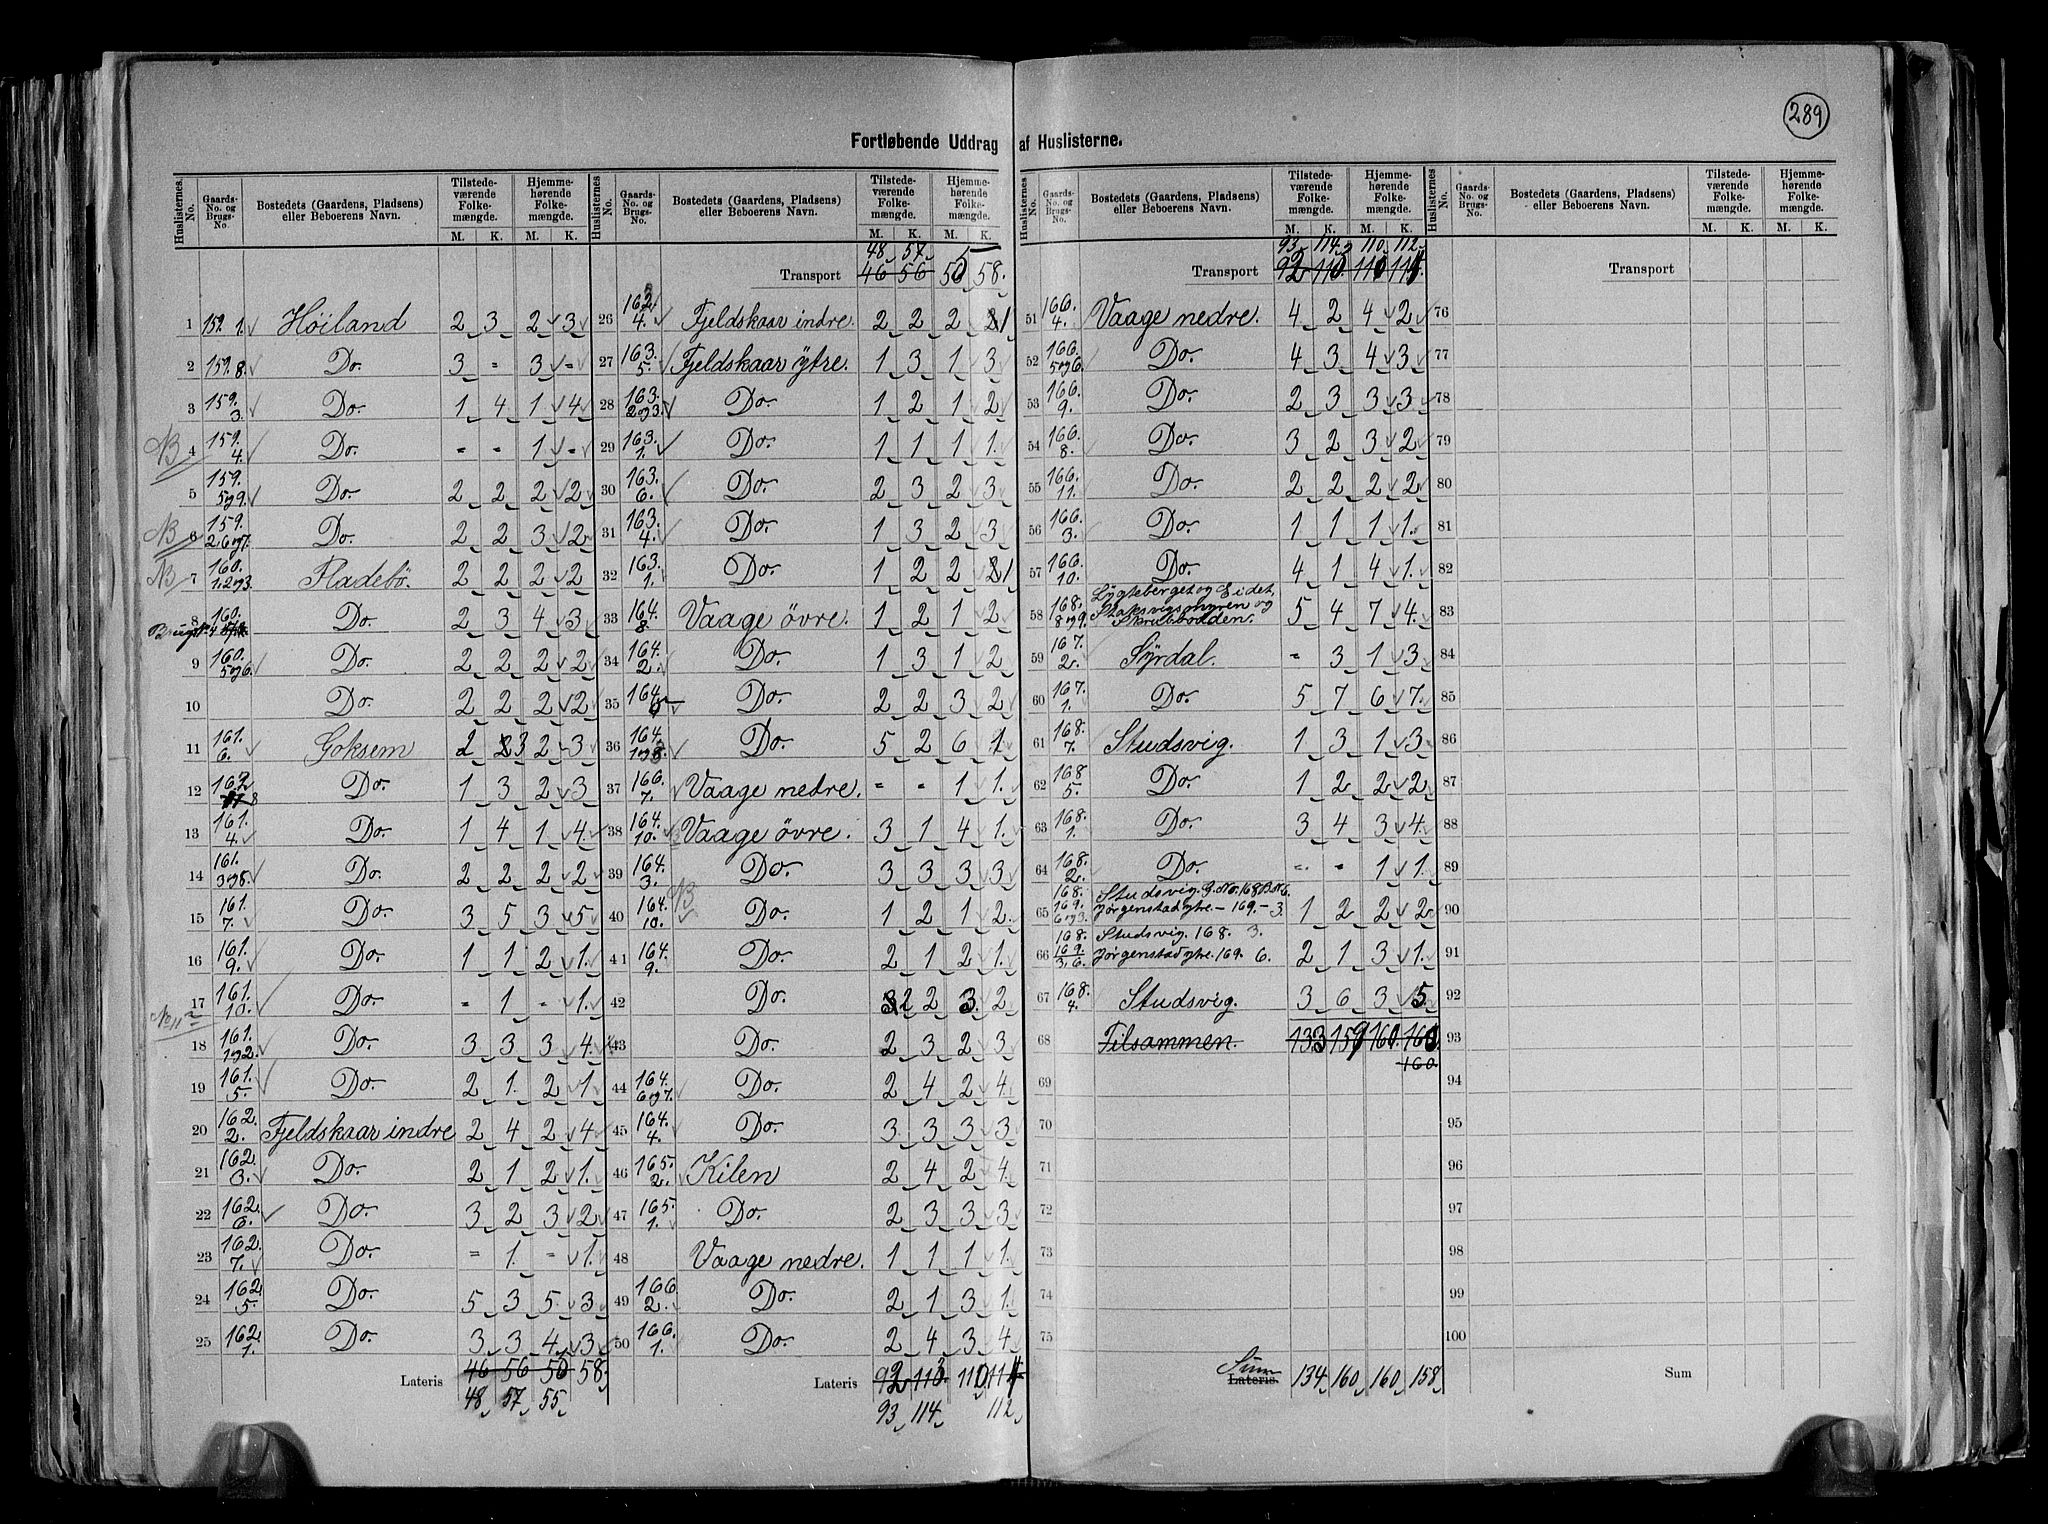 289
Fortløbende Uddrag af Huslisterne.
Huslisternes No. | Gaards-No. og Brugs-No. | Bostedets (Gaardens, Pladsens) eller Beboerens Navn. | Tilstedeværende Folkemængde. M. K. | Hjemmehørende Folkemængde. M. K.
1 159. 1. Höiland 2 3 2 3
2 159. 8. Do. 3 = 3 =
3 159. 3. Do. 1 4 1 4
NB 4 159. 4. Do. = = 1 =
5 159. 5og9. Do. 2 2 2 2
NB 6 159. 2.6og7. Do. 2 2 3 2
NB 7 160. 1.2og3. Fladebö. 2 2 2 2
8 160. Do. 2 3 4 3
9 160. 5og6. Do. 2 2 2 2
10 Do. 2 2 2 2
11 161. 6. Goksem 2 3 2 3
12 Do. 1 3 2 3
13 161. 4. Do. 1 4 1 4
14 161. 3og8. Do. 2 2 2 2
15 161. 7. Do. 3 5 3 5
16 161. 9. Do. 1 1 2 1.
17 161. 10. Do. = 1 = 1.
18 161. 1og2. Do. 3 3 3 4.
19 161. 5. Do. 2 1. 2 1
20 162. 2. Fjeldskaar indre 2 4 2 4
21 162. 3. Do. 2 1 2 1.
22 162. 6. Do. 3 2 3 2
23 162. 7. Do. = 1. = 1.
24 162. 5. Do. 5 3 5 3
25 162. 1. Do. 3 3 4 3
Lateris 46 56 50 58.
48 57 55
48 57 5
Transport 46 56 50 58.
26 162. 4. Fjeldskaar indre. 2 2 2 1
27 163. 5. Fjeldskaar ytre. 1 3 1 3
28 163. 2og3. Do. 1 2 1 2
29 163. 1. Do. 1 1 1 1.
30 163. 6. Do. 2 3 2 3
31 163. 4. Do. 1 3 2 3
32 163. 1. Do. 1 2 2 1
33 164. 8. Vaage övre. 1 2 1 2
34 164. 2. Do. 1 3 1 2
35 164. Do. 2 2 3 2
36 164. Do. 5 2 6 1
37 166. 7. Vaage nedre. = = 1 1.
38 164. 10. Vaage övre. 3 1 4 1.
39 164. 3. Do. 3 3 3 3
NB 40 164. 10. Do. 1 2 1 2.
41 164. 9. Do. 2 1 2 1.
42 Do. 2 2 3 2
43 Do. 2 3 2 3
44 164. 6og7. Do. 2 4 2 4
45 164. 4. Do. 3 3 3 3
46 165. 2. Kilen 2 4 2 4
47 165. 1. Do. 2 3 3 3
48 Vaage nedre. 1 1 1 1
49 166. 2. Do. 2 1 3 1.
50 166. 1. Do. 2 4 3 4
Lateris 92 113 110 111
93 114 112
93 114 110 112
Transport 92 113 110 111
51 166. 4. Vaage nedre. 4 2 4 2
52 166. 5og6. Do. 4 3 4 3
53 166. 9. Do. 2 3 3 3
54 166. 8. Do. 3 2 3 2
55 166. 11. Do. 2 2 2 2
56 166. 3. Do. 1 1 1 1.
57 166. 10. Do. 4 1 4 1.
58 168. 8og9. Lygteberget og Eidet, Staksvigsmyren og Skrubbodden. 5 4 7 4.
59 167. 2. Syrdal. = 3 1 3
60 167. 1. Do. 5 7 6 7.
61 168. 7. Studsvig. 1 3 1 3
62 168 5. Do. 1 2 2 2
63 168. 1. Do. 3 4 3 4
64 168. 2. Do. = = 1 1.
65 168. 169. 6og3. Studsvig. G.No. 168 B.N.6.
Jörgenstad ytre — 169. — 3. 1 2 2 2
66 168. 169. 3. 6. Studsvig. 168. 3.
Jörgenstad ytre. 169. 6. 2 1 3 1.
67 168. 4. Studsvig. 3 6 3 5
68 Tilsammen. 133 159 160 160
160
69
70
71
72
73
74
75
Sum Lateris. 134 160 160 158
Transport
76
77
78
79
80
81
82
83
84
85
86
87
88
89
90
91
92
93
94
95
96
97
98
99
100
Sum